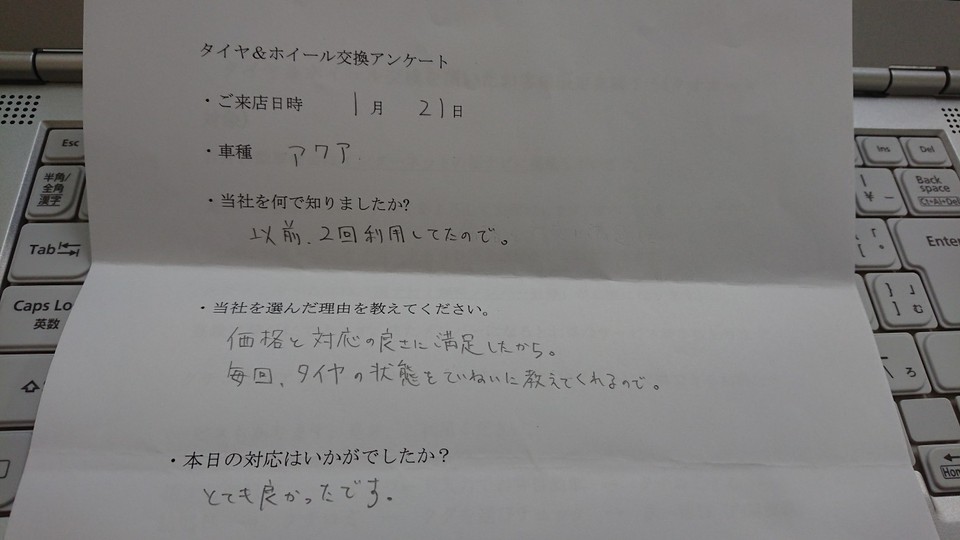 タイヤ&ホイール交換アンケート
・ご来店日時 1月 21日
・車種 アクア.
・当社を何で知りましたか?
以前、2回利用してたので。
・当社を選んだ理由を教えてください。
価格と対応の良さに満足したから。
毎回、タイヤの状態をていねいに教えてくれるので。
・本日の対応はいかがでしたか？
とても良かったです。
Esc
半角/
全角
漢字
Tab
Caps Lo
英数
Ins
Del
|
¥ _
Back
space
Ctl+Al+Del
Enter
} 」
] む
ろ
Hom